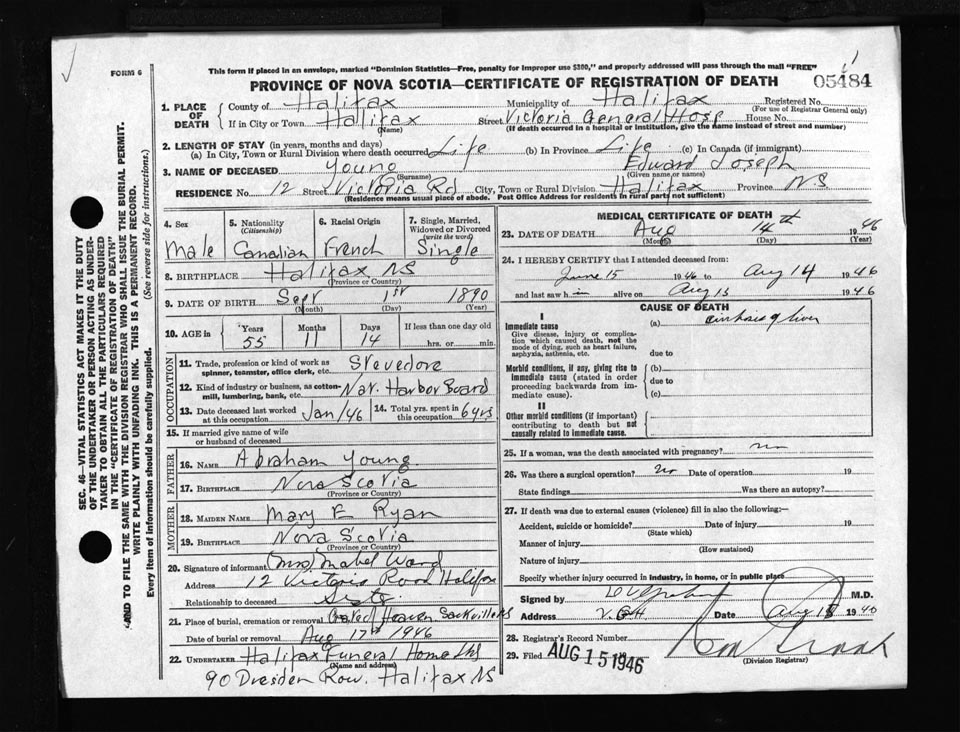 FORM 6
This form if placed in an envelope, marked "Dominion Statistics—Free, penalty for improper use $300," and properly addressed will pass through the mail "FREE"
PROVINCE OF NOVA SCOTIA—CERTIFICATE OF REGISTRATION OF DEATH
05484
1. PLACE OF DEATH
County of Halifax Municipality of Halifax Registered No.
(For use of Registrar General only)
If in City or Town Halifax Street Victoria General Hosp House No.
(Name) (If death occurred in a hospital or institution, give the name instead of street and number)
2. LENGTH OF STAY (in years, months and days)
(a) In City, Town or Rural Division where death occurred Life (b) In Province Life (c) In Canada (if immigrant)
3. NAME OF DECEASED Young Edward Joseph
(Surname) (Given name or names)
RESIDENCE No. 12 Street Victoria Rd City, Town or Rural Division Halifax Province N.S
(Residence means usual place of abode. Post Office Address for residents in rural parts not sufficient)
4. Sex
Male
5. Nationality
(Citizenship)
Canadian
6. Racial Origin
French
7. Single, Married, Widowed or Divorced
(write the word)
Single
8. BIRTHPLACE Halifax NS
(Province or Country)
9. DATE OF BIRTH Sept 1st 1890
(Month) (Day) (Year)
10. AGE in Years Months Days If less than one day old
55 11 14 hrs. or min.
OCCUPATION
11. Trade, profession or kind of work as spinner, teamster, office clerk, etc. Stevedore
12. Kind of industry or business, as cotton-mill, lumbering, bank, etc. Nat. Harbor Board
13. Date deceased last worked at this occupation Jan/46 14. Total yrs. spent in this occupation 6 yrs
15. If married give name of wife or husband of deceased
FATHER
16. NAME Abraham Young
17. BIRTHPLACE Nova Scotia
(Province or Country)
MOTHER
18. MAIDEN NAME Mary E Ryan
19. BIRTHPLACE Nova Scotia
(Province or Country)
20. Signature of informant (Mrs) Mabel Ward
Address 12 Victoria Road Halifax
Relationship to deceased Sister
21. Place of burial, cremation or removal Heaven Sackville NS
Date of burial or removal Aug 17th 1946
22. UNDERTAKER Halifax Funeral Home Ltd
(Name and address)
90 Dresden Row. Halifax NS
MEDICAL CERTIFICATE OF DEATH
23. DATE OF DEATH Aug 14th 1946
(Month) (Day) (Year)
24. I HEREBY CERTIFY that I attended deceased from:
June 15 1946 to Aug 14 1946
and last saw him alive on Aug 13 1946
CAUSE OF DEATH
I
Immediate cause
Give disease, injury or complication which caused death, not the mode of dying, such as heart failure, asphyxia, asthenia, etc.
(a) cirrhosis of liver
due to
Morbid conditions, if any, giving rise to immediate cause (stated in order proceeding backwards from immediate cause).
(b)
due to
(c)
II
Other morbid conditions (if important) contributing to death but not causally related to immediate cause.
25. If a woman, was the death associated with pregnancy? no
26. Was there a surgical operation? no Date of operation 19
State findings Was there an autopsy?
27. If death was due to external causes (violence) fill in also the following:—
Accident, suicide or homicide? Date of injury 19
(State which)
Manner of injury
(How sustained)
Nature of injury
Specify whether injury occurred in industry, in home, or in public place
Signed by M.D.
Address V.G.H. Date Aug 15 1940
28. Registrar's Record Number
29. Filed AUG 15 1946
(Division Registrar)
SEC. 46—VITAL STATISTICS ACT MAKES IT THE DUTY OF THE UNDERTAKER OR PERSON ACTING AS UNDERTAKER TO OBTAIN ALL THE PARTICULARS REQUIRED IN THE "CERTIFICATE OF REGISTRATION OF DEATH" AND TO FILE THE SAME WITH THE DIVISION REGISTRAR WHO SHALL ISSUE THE BURIAL PERMIT.
WRITE PLAINLY WITH UNFADING INK. THIS IS A PERMANENT RECORD.
Every item of information should be carefully supplied. (See reverse side for instructions.)